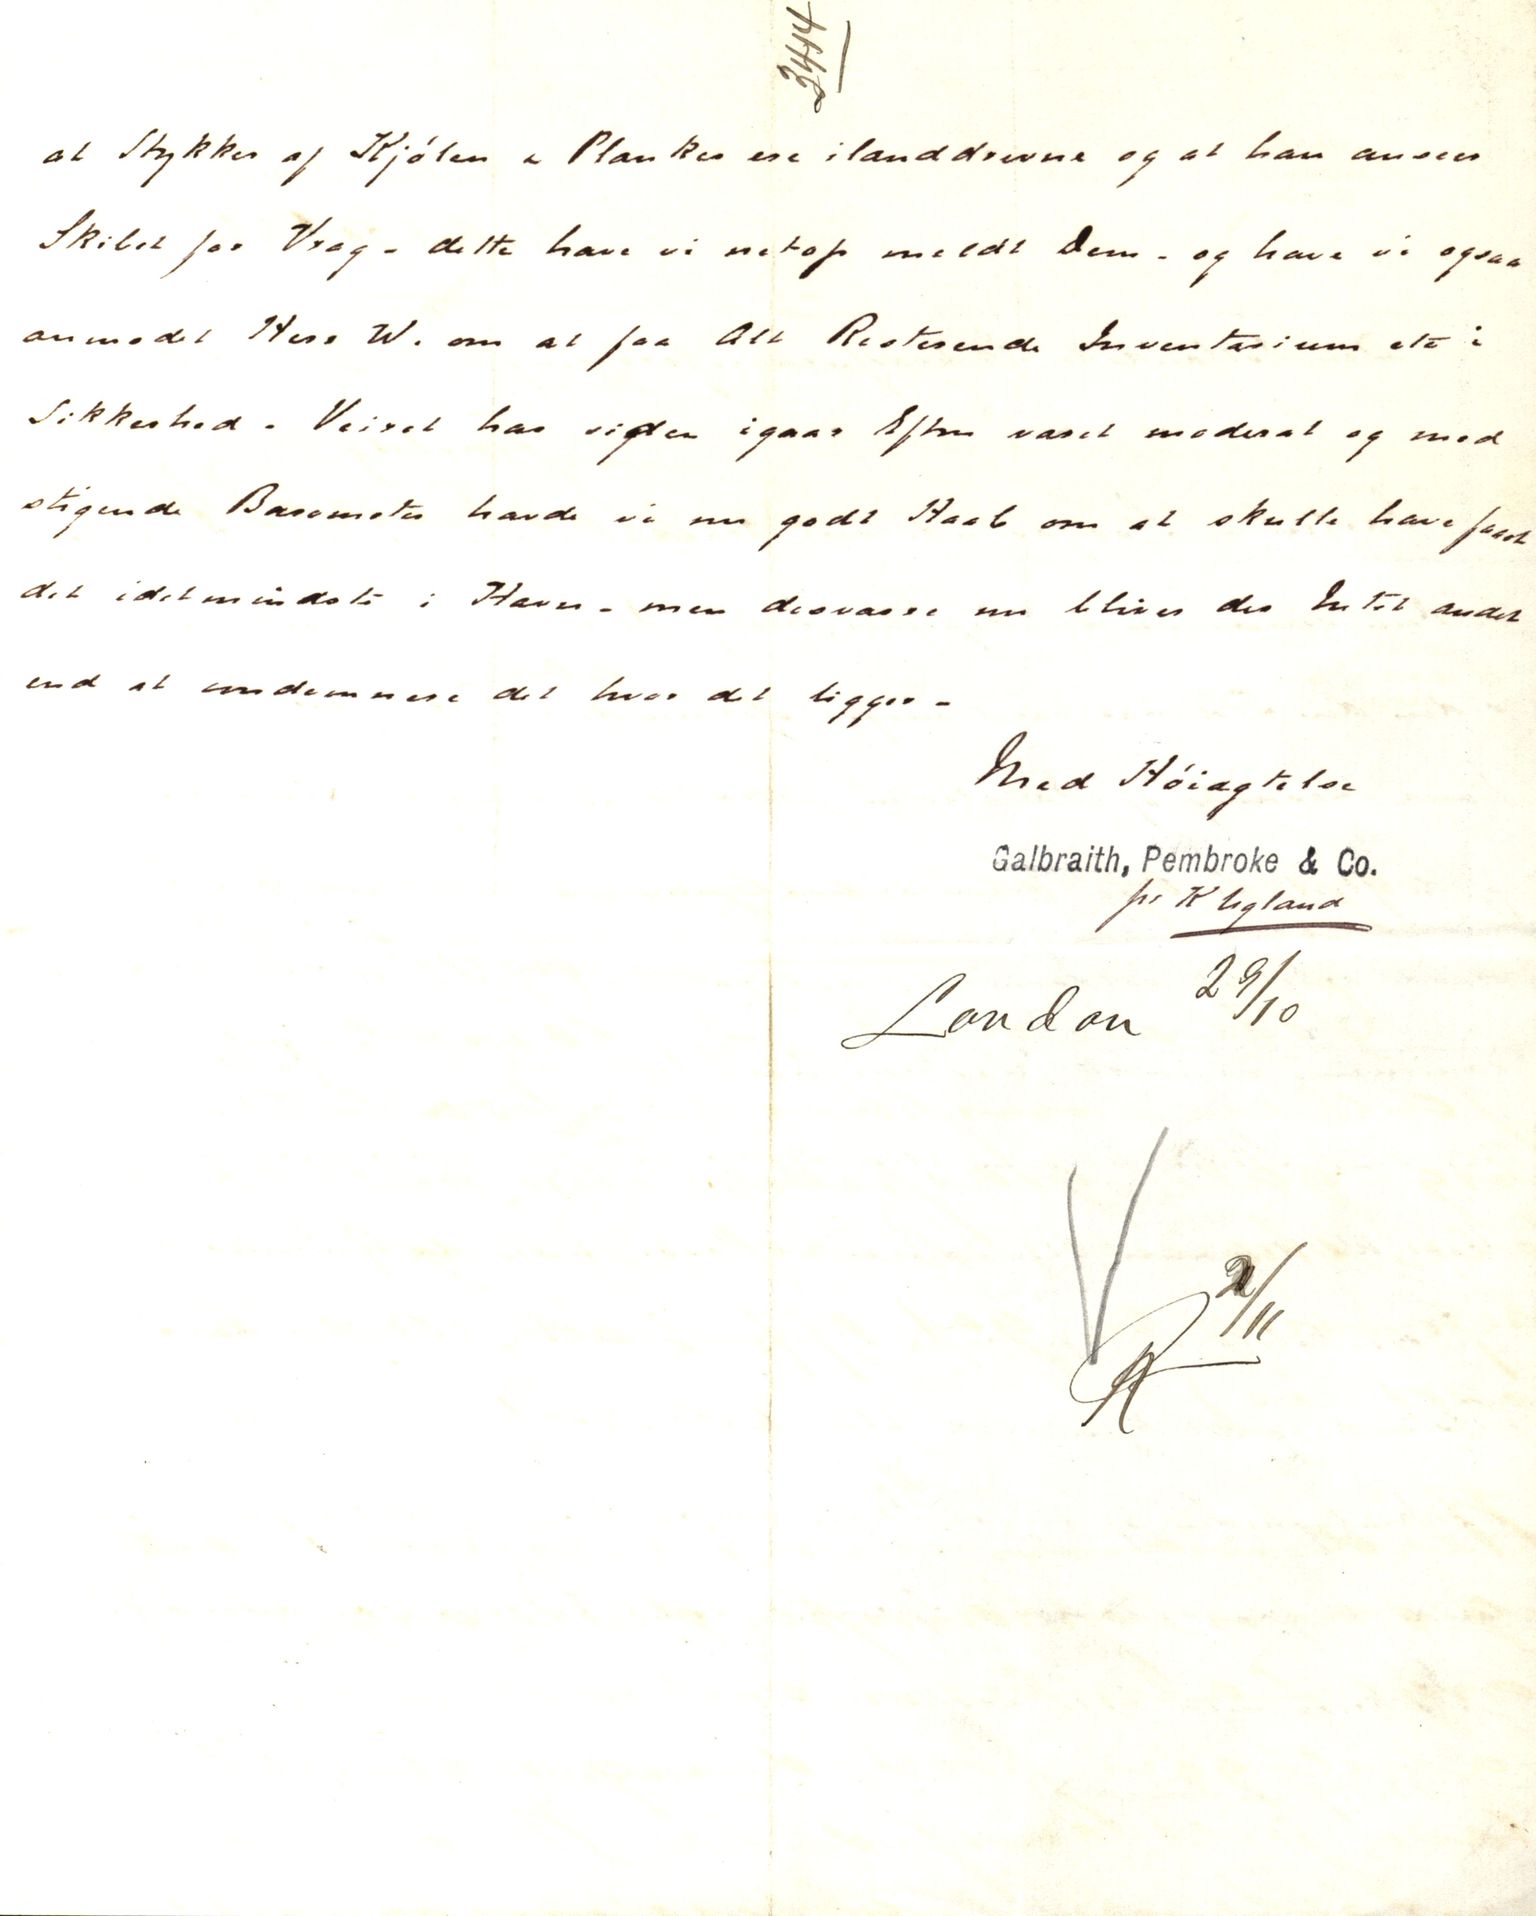 3444
at Stykker af Kjölen & Planker ere ilanddrevne og at han ansees
Skibet for Vrag - dette have vi netop meldt Dem - og have vi ogsaa
anmodet Herr W. om at faa Alt Resterende Inventarium etc i
Sikkerhed - Veiret har siden igaar Eftm varet moderat og med
stigende Barometer havde vi nu godt Haab om at skulle have faaet
det idetmindste i Havn - men desvarre nu bliver der Intet andet
end at condemnere det hvor det ligger -
Med Höiagtelse
Galbraith, Pembroke & Co.
pr K Ugland
London 29/10
2/11